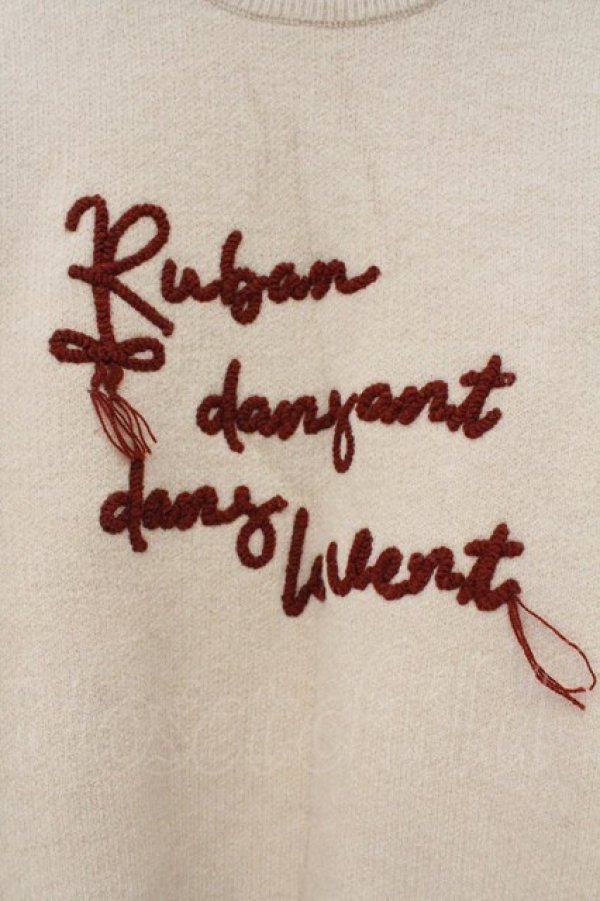 Ruban
dansant
dans le vent